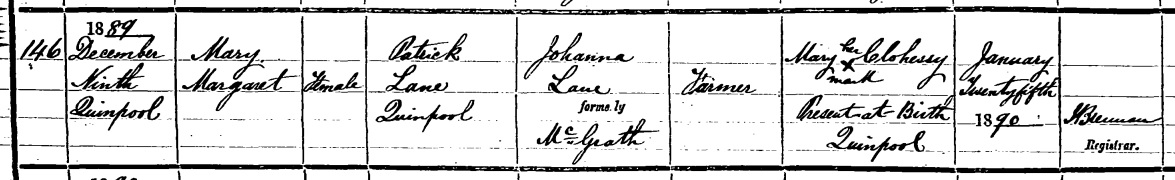 146
1889
December
Ninth
Quinpool
Mary
Margaret
Female
Patrick
Lane
Quinpool
Johanna
Lane
formerly
McGrath
Farmer
Mary her Clohessy
X
mark
Present at Birth
Quinpool
January
Twentyfifth
1890
Brennan
Registrar.